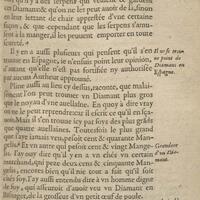 dements qu'on ne let peut auoir de là, sinon
en leur iettant de chair appestée d'vne certaine
façon, & que cependant que les serpens s'amu-
sent à la manger, il les peuuent emporter en toute
seureté.
Il y en a aussi plusieurs qui pensent qu'il s'en
trouue en Espaigne, ie n'ensuis point leur opinion,
d'autant qu'elle n'est pas fortifiée ny authorisée
par aucun Autheur approuué.
Il ne se trou-
ue point de
Diamans en
Espagne.
Pline audit au lieu cy dessus, raconte, que malai-
sement l'on peut trouuer vn Diamant plus gros
que le noyau d'vne auellaine. En quoy à dire vray
on ne le peut reprendre, ny de ce qu'il n'en a con-
nu. Mais il s'en trouue icy par foys plus grãds
que quatre auellaines. Toutesfois le plus grand
que i'aye veu, poisoit cent & quarante Man-
gelis. Et vn autre qui poisoit cent & vingt Mange-
lis. I'ay ouy dire qu'il y en a vn chés vn certain
marchand, qui peze deux cens & cinquante Man-
gelis, encores bien qu'il nie
chés soy. I'ay aussi entendu dire à vn homme digne
de foy, qui asseuroit d'auoir veu vn Diamant en
Bisnager, de la grosseur d'vn petit œuf de poule.
Grandeur
d'vn Dia-
mant.